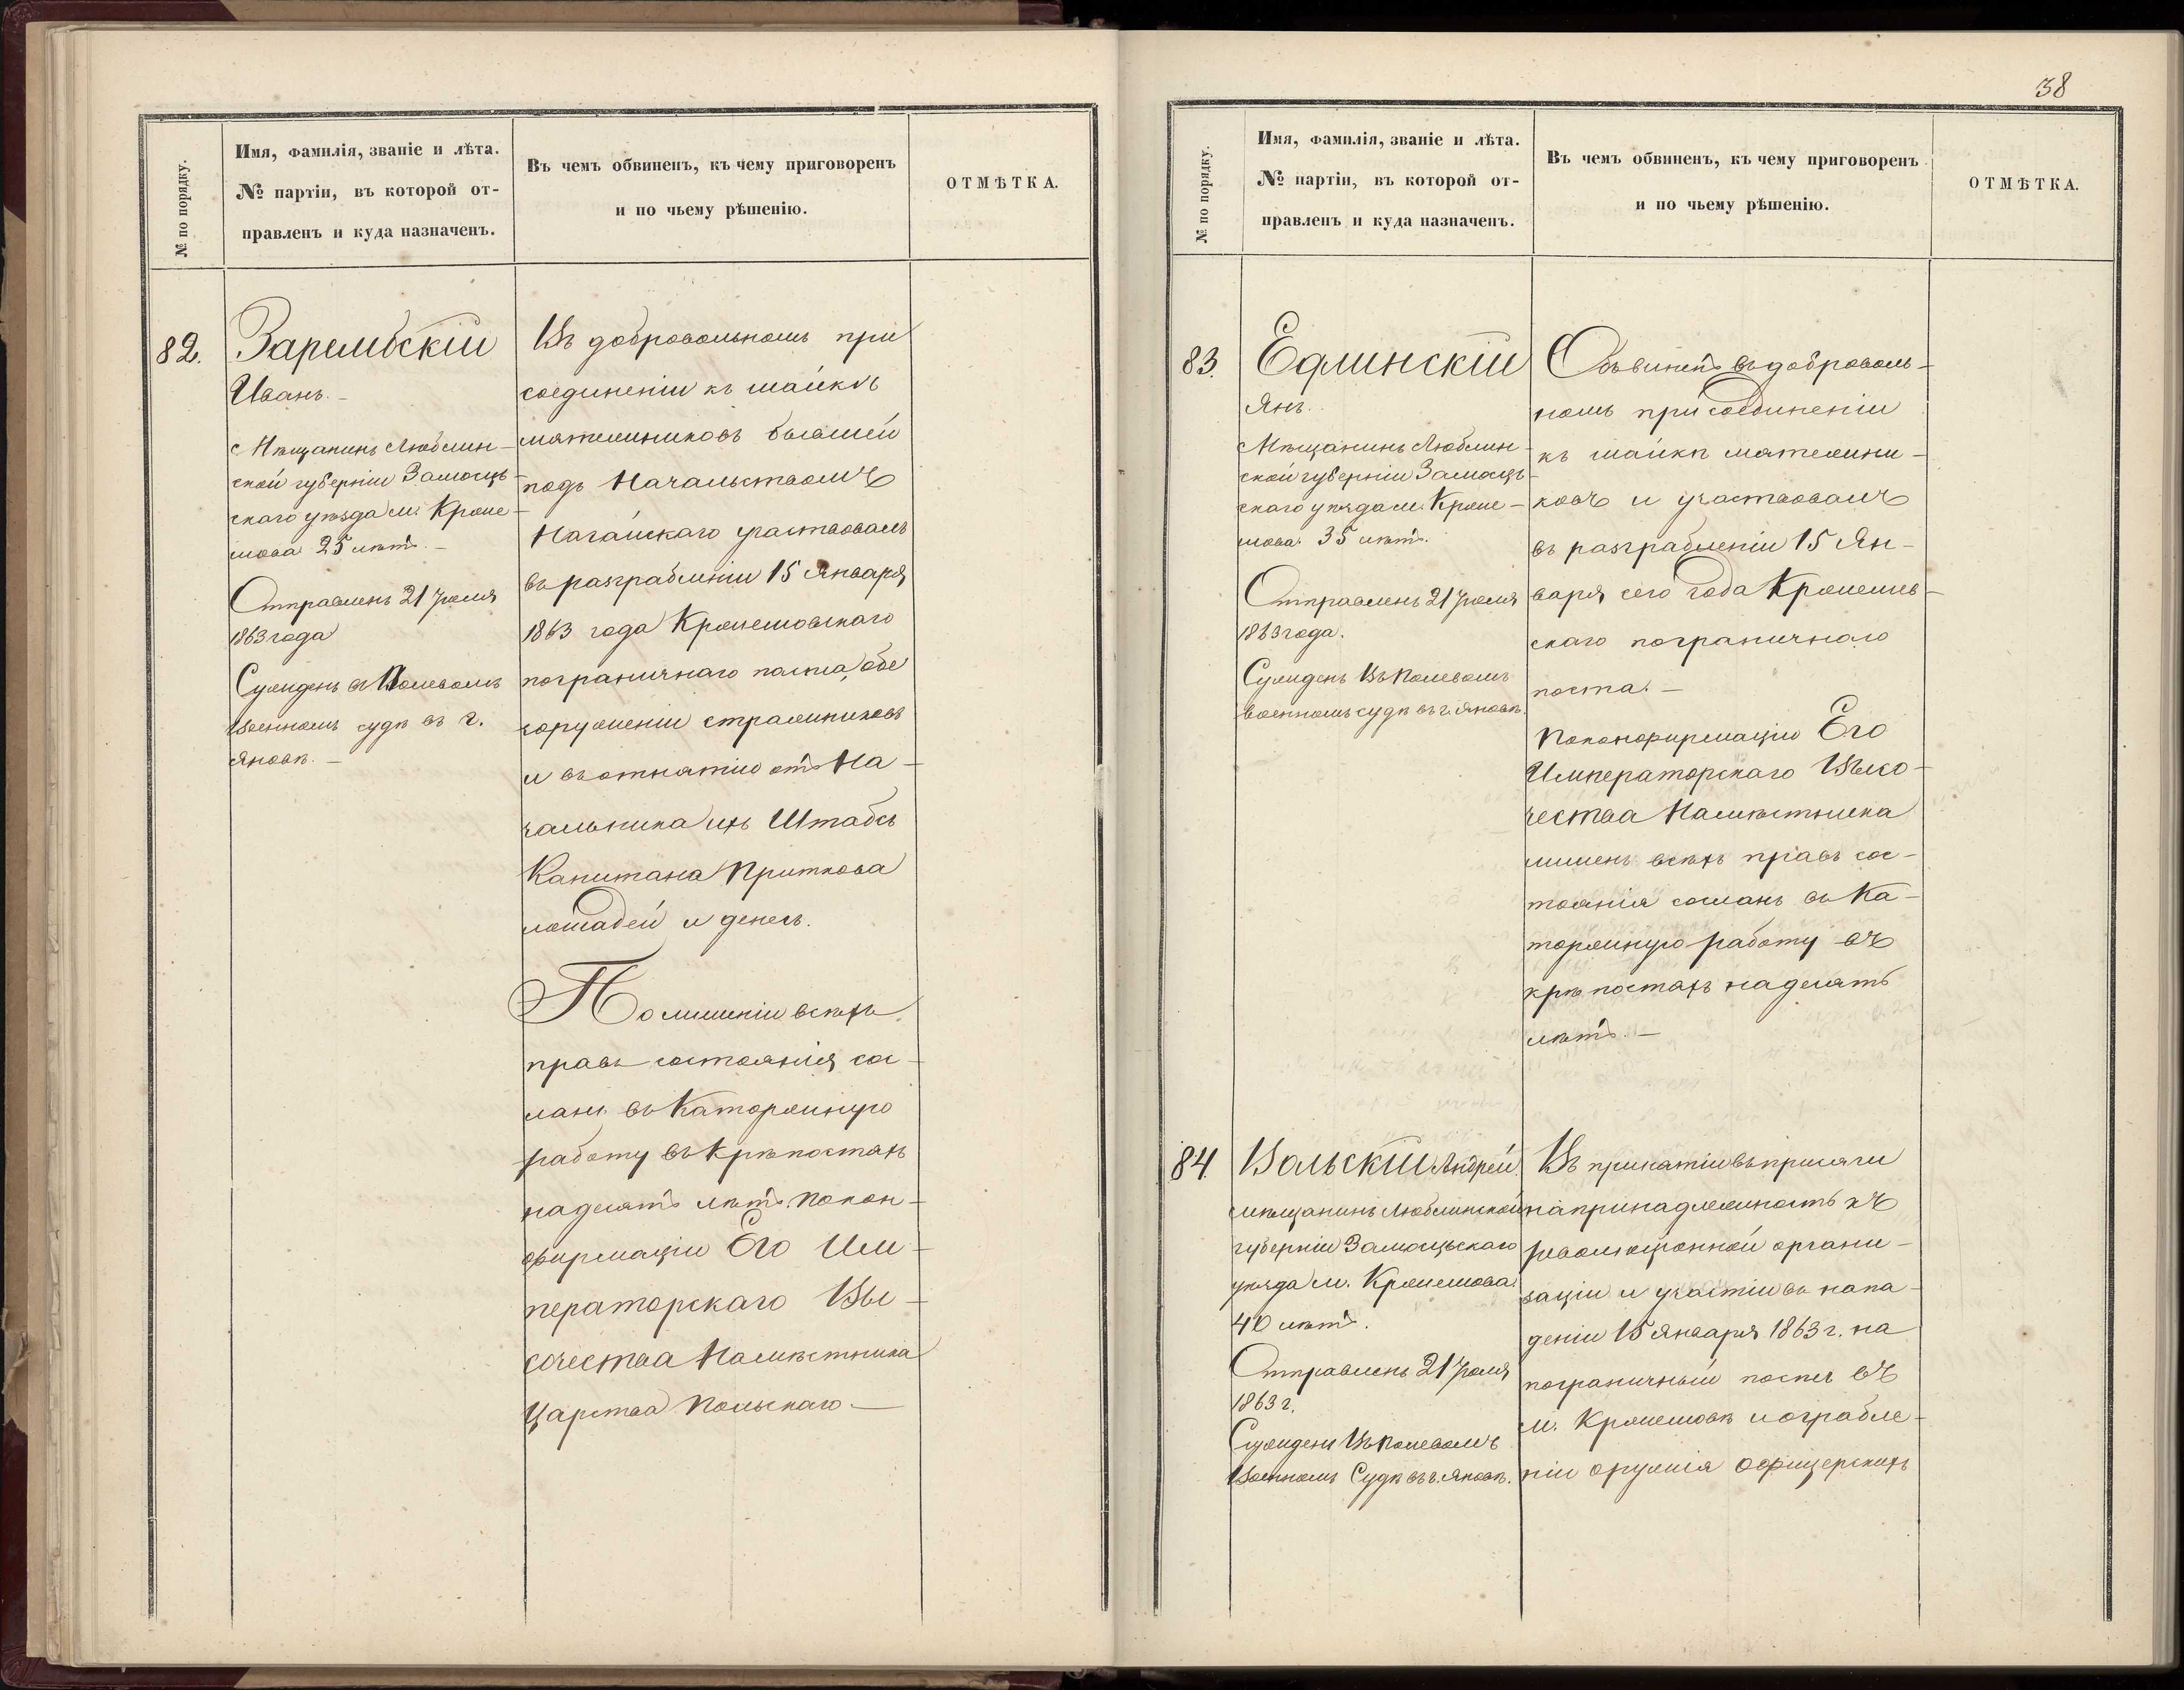 № по порядку.
Имя, фамилія, званіе и лѣта.
№ партіи, въ которой от-
правленъ и куда назначенъ.
Въ чемъ обвиненъ, къ чему приговоренъ
и по чьему рѣшенію.
ОТМѢТКА.
82.
Зарембскій
Иванъ.
Мѣщанинъ Люблин-
ской губерніи Замосць-
скаго уѣзда м. Кроше-
шова 25 лѣтъ.
Отправленъ 21 Іюля
1863 года
Сужденъ въ Полевомъ
Военномъ судѣ въ г.
Яновѣ.
Въ добровольномъ при
соединеніи къ шайкѣ
мятежниковъ бывшей
подъ Начальствомъ
участвовалъ
въ разграбленіи 15 Января
1863 года Кржешовскаго
пограничнаго поста, обе
зоруженіи стражниковъ
и въ отнятію отъ На-
чальника ихъ Штабсъ
Капитана Приткова
лошадей и денегъ.
По лишеніи всѣхъ
правъ состоянія сос-
ланъ въ Каторжную
работу въ Крѣпостяхъ
на десять лѣтъ. По кон-
фирмаціи Его Им-
ператорскаго Вы-
сочества Намѣстника
Царства Польскаго.
38
№ по порядку.
Имя, фамилія, званіе и лѣта.
№ партіи, въ которой от-
правленъ и куда назначенъ.
Въ чемъ обвиненъ, къ чему приговоренъ
и по чьему рѣшенію.
ОТМѢТКА.
83.
Едлинскій
Янъ.
Мѣщанинъ Люблин-
ской губерніи Замосць-
скаго уѣзда м. Кроше-
шова. 35 лѣтъ.
Отправленъ 21 Іюля
1863 года.
Сужденъ Въ Полевомъ
военномъ судѣ въ г. Яновѣ.
Обвиненъ въ доброволь-
номъ присоединеніи
къ шайкѣ мятежни-
ковъ и участвовалъ
въ разграбленіи 15 Ян-
варя сего года Кржешев-
скаго пограничнаго
поста.
По конфирмацію Его
Императорскаго Высо-
чества Намѣстника
лишенъ всѣхъ правъ сос-
тоянія сосланъ въ Ка-
торжную работу въ
крѣпостяхъ на десять
лѣтъ.
84.
Вольскій Андрей
мѣщанинъ Люблинской
губерніи Замосцьскаго
уѣзда м. Кржешова.
40 лѣтъ.
Отправленъ 21 Іюля
1863 г.
Сужденъ Въ Полевомъ
Военномъ Судѣ въ г. Яновѣ.
Въ принятіи въ присяги
на принадлежность къ
революціонной органи-
заціи и участіи въ напа-
деніи 15 Января 1863 г. на
пограничный постъ въ
м. Кржешовѣ и ограбле-
ніи оружія Офицерскихъ